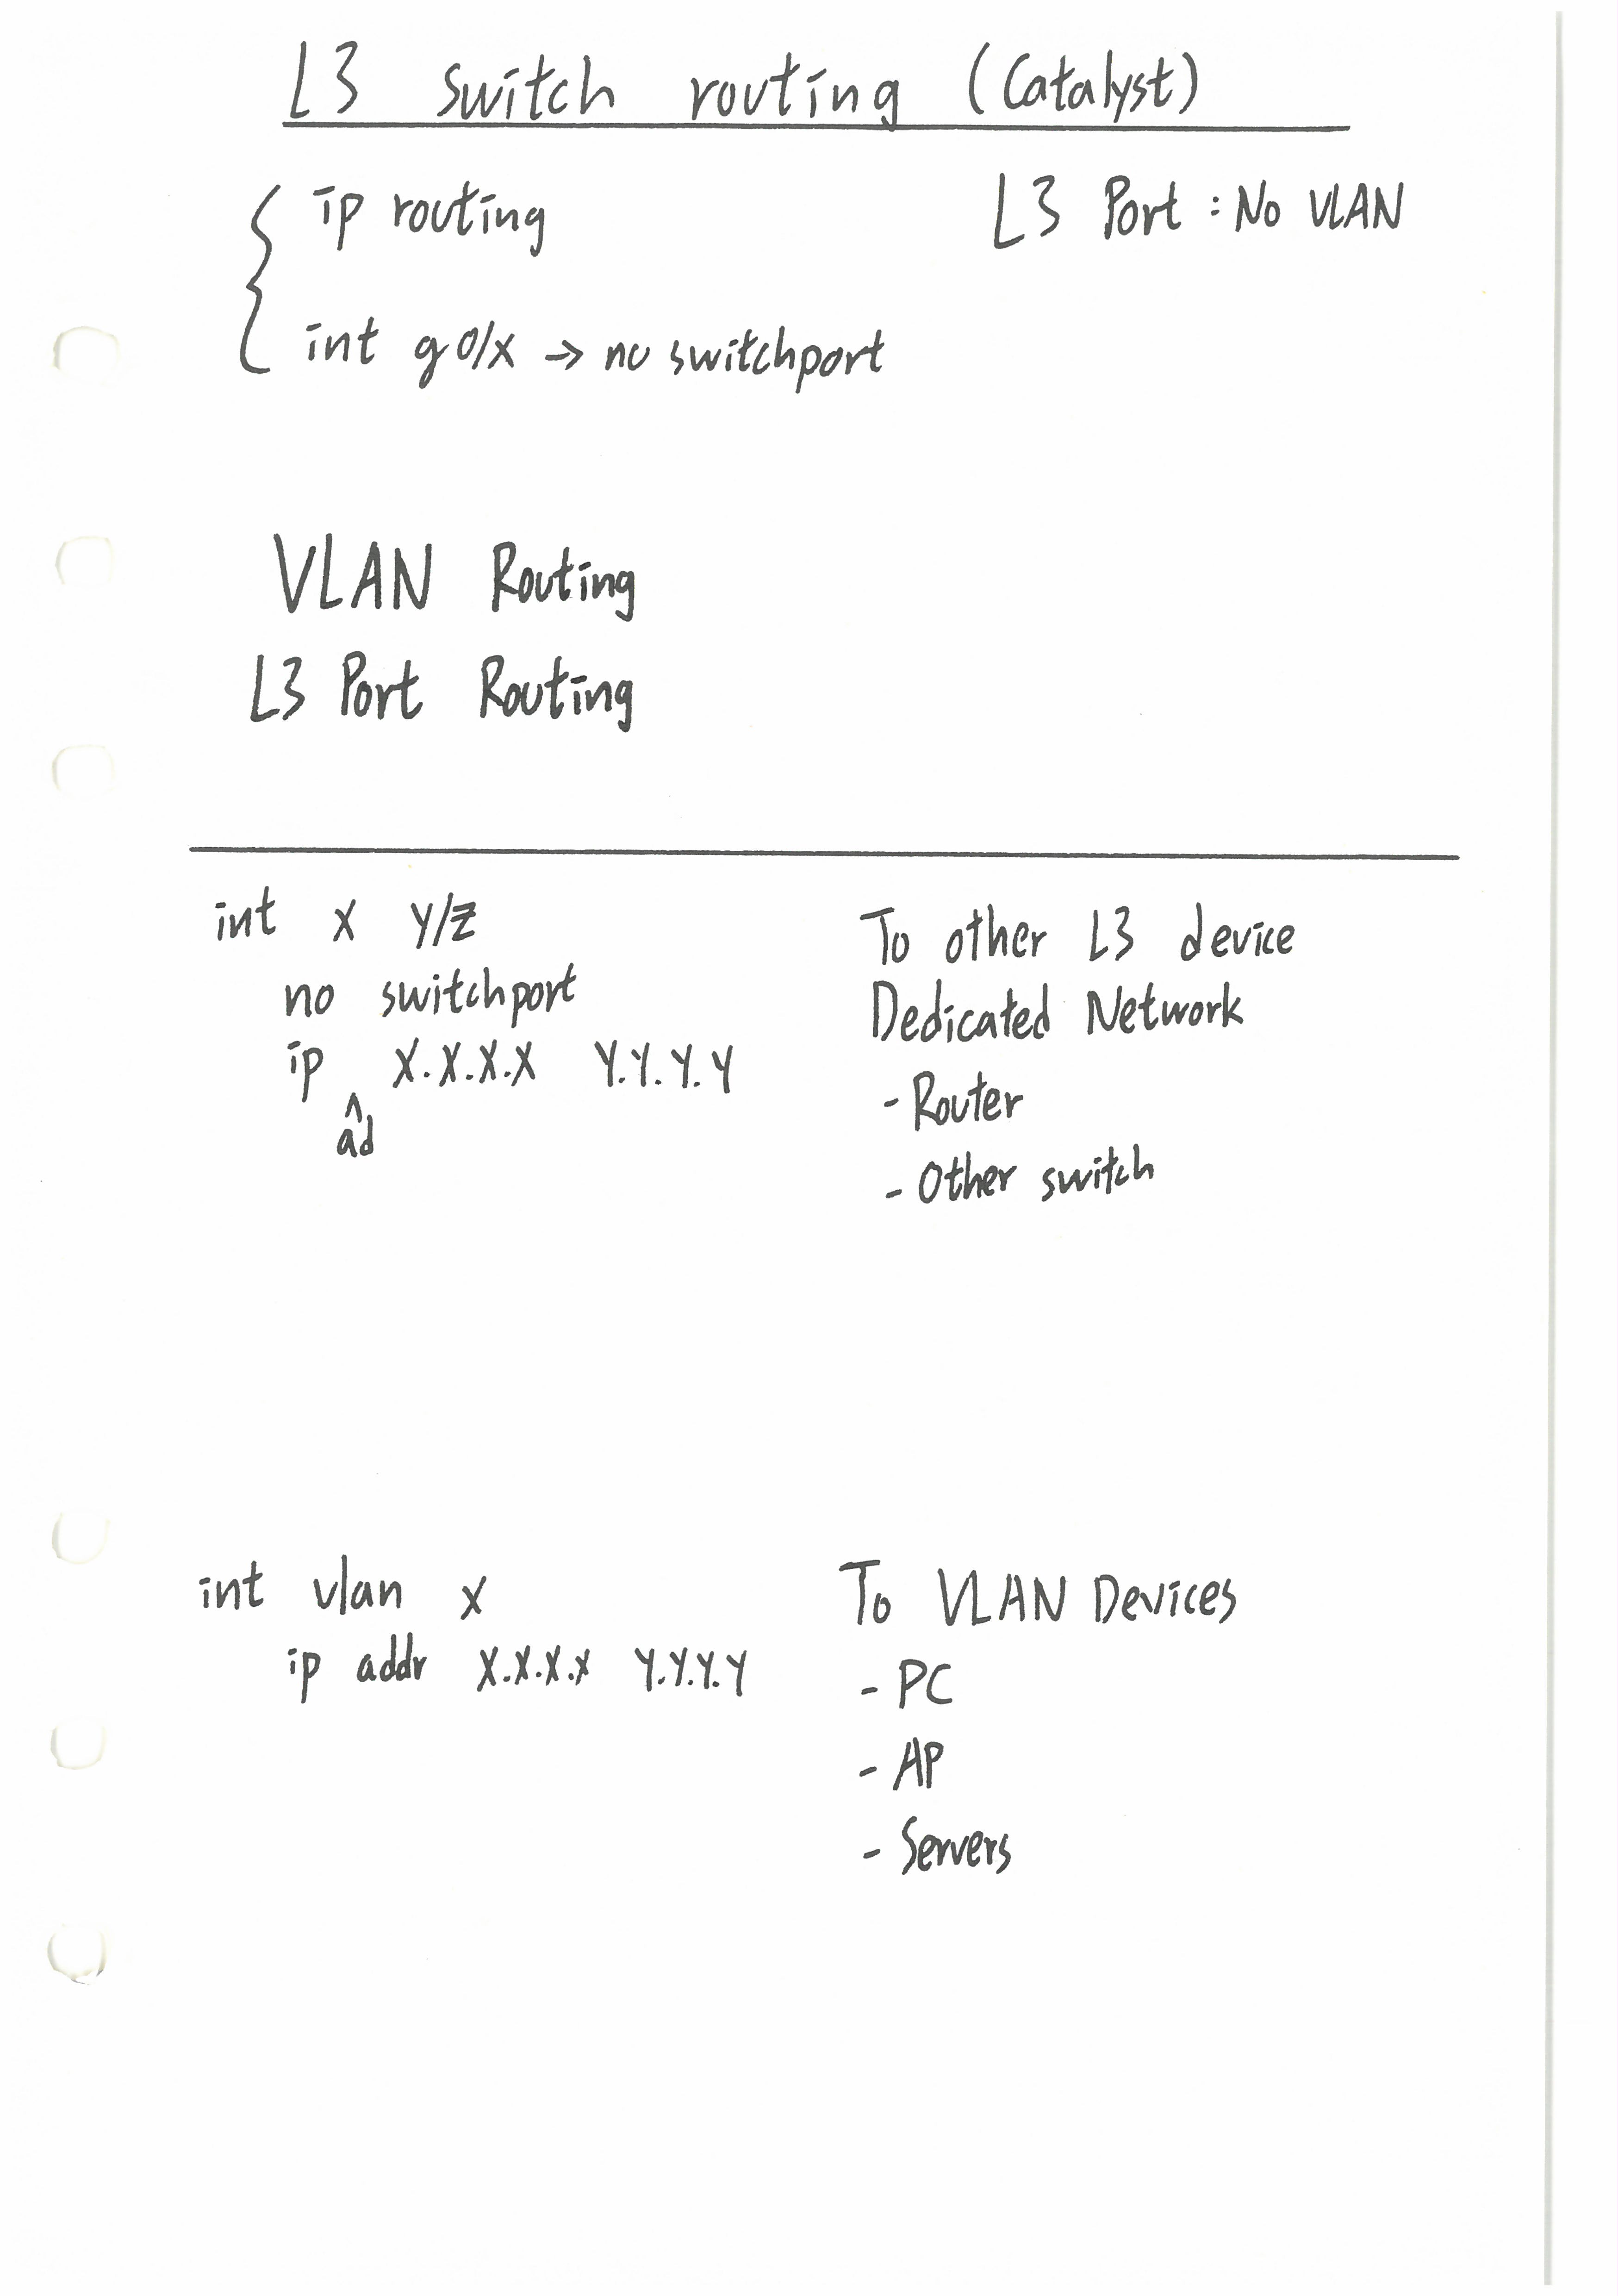 L3 switch routing (Catalyst)
ip routing
L3 Port : No VLAN
int g0/x → no switchport
VLAN Routing
L3 Port Routing
int x y/z
no switchport
ip ^ad x.x.x.x y.y.y.y
To other L3 device
Dedicated Network
- Router
- Other switch
int vlan x
ip addr x.x.x.x y.y.y.y
To VLAN Devices
- PC
- AP
- Servers